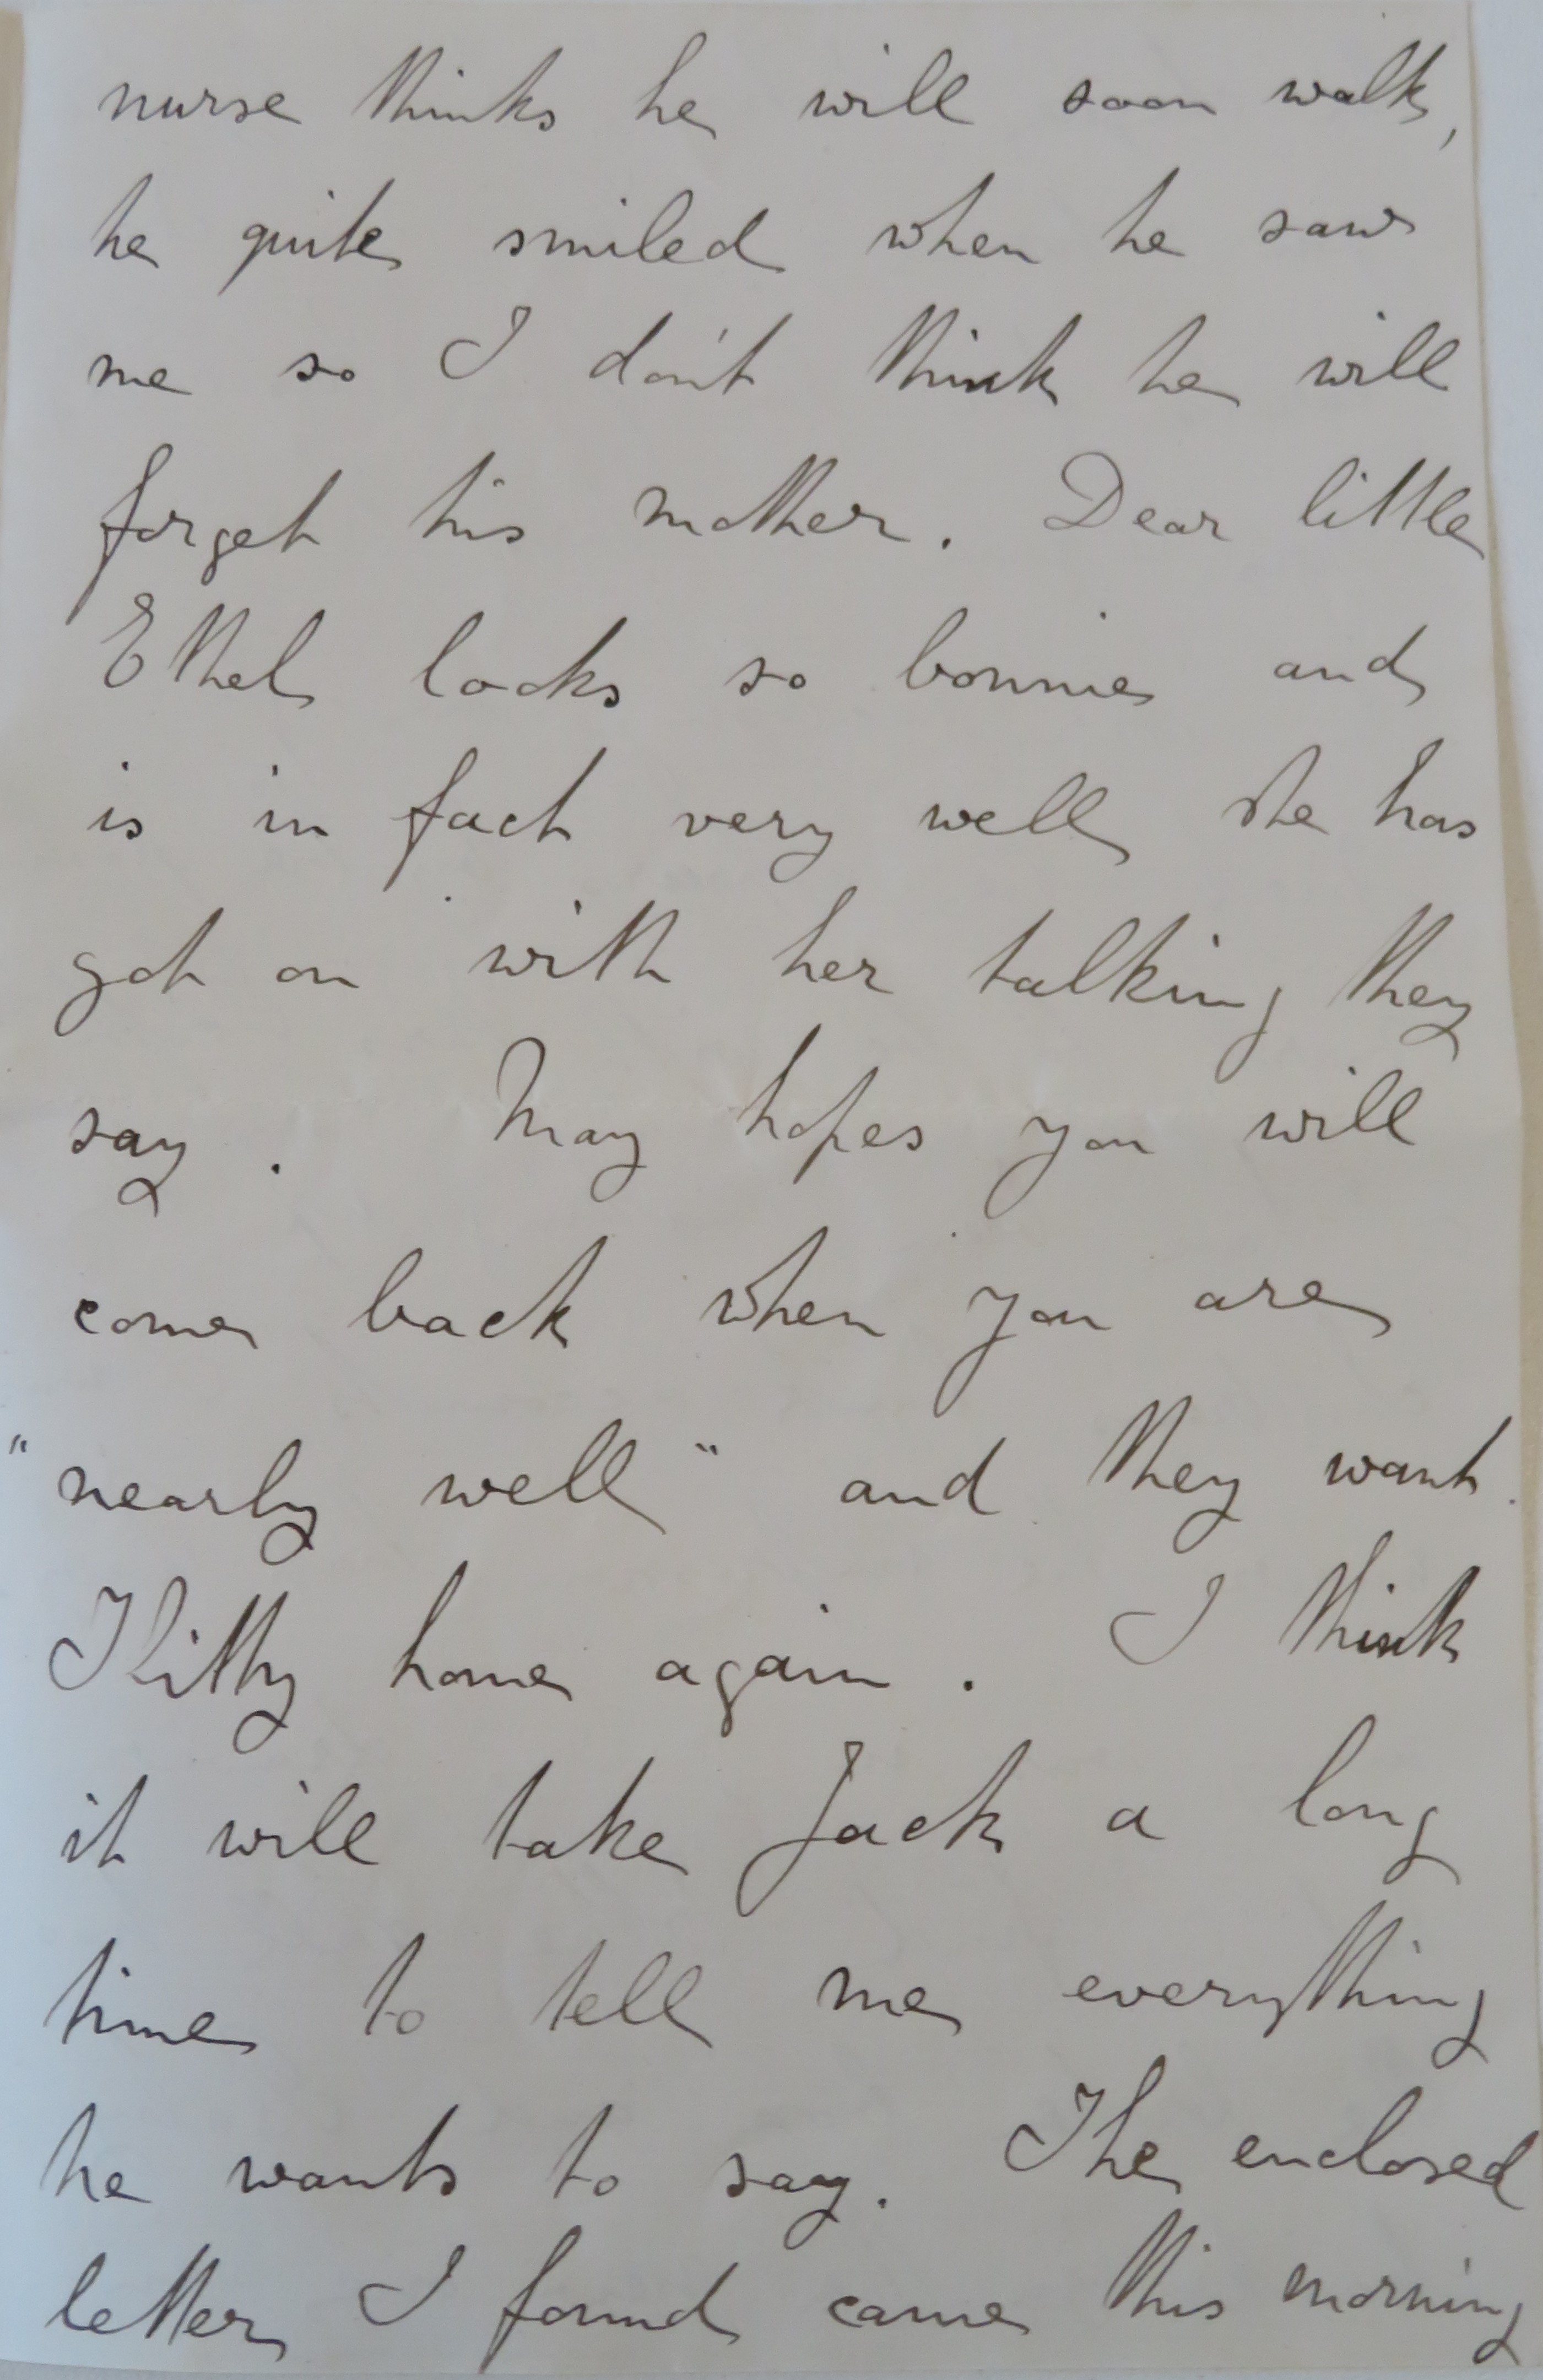 nurse thinks he will soon walk,
he quite smiled when he saw
me so I don't think he will
forget his mother. Dear little
Ethel looks so bonnie and
is in fact very well she has
got on with her talking they
say. May hopes you will
come back when you are
"nearly well" and they want
Kitty home again. I think
it will take Jack a long
time to tell me everything
he wants to say. The enclosed
letter I found came this morning